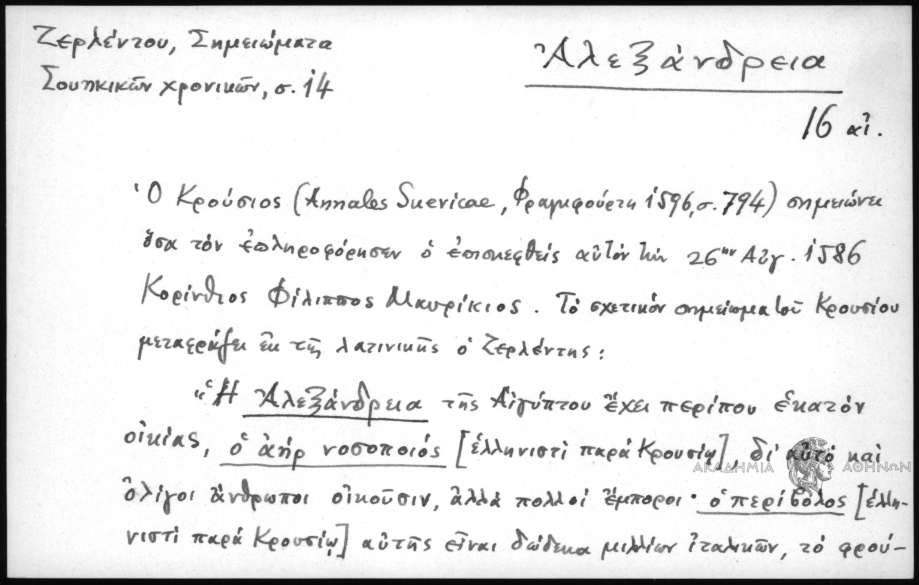 Ζερλέντου, Σημειώματα
Σουηκικῶν χρονικῶν, σ. 14
Ἀλεξάνδρεια
16 αἰ.
Ὁ Κρούσιος (Annales Suevicae, Φραγκφούρτη 1596, σ. 794) σημειώνει
ὅσα τὸν ἐπληροφόρησεν ὁ ἐπισκεφθεὶς αὐτὸν τὴν 26ην Αὐγ. 1586
Κορίνθιος Φίλιππος Μαυρίκιος. Τὸ σχετικὸν σημείωμα τοῦ Κρουσίου
μεταφράζει ἐκ τῆς λατινικῆς ὁ Ζερλέντης:
"Ἡ Ἀλεξάνδρεια τῆς Αἰγύπτου ἔχει περίπου ἑκατὸν
οἰκίας, ὁ ἀὴρ νοσοποιός [ἑλληνιστὶ παρὰ Κρουσίῳ], δι' αὐτὸ καὶ
ὀλίγοι ἄνθρωποι οἰκοῦσιν, ἀλλὰ πολλοὶ ἔμποροι· ὁ περίβολος [ἑλλη-
νιστὶ παρὰ Κρουσίῳ] αὐτῆς εἶναι δώδεκα μιλλίων ἰταλικῶν, τὸ φρού-
ΑΚΑΔΗΜΙΑ ΑΘΗΝΩΝ